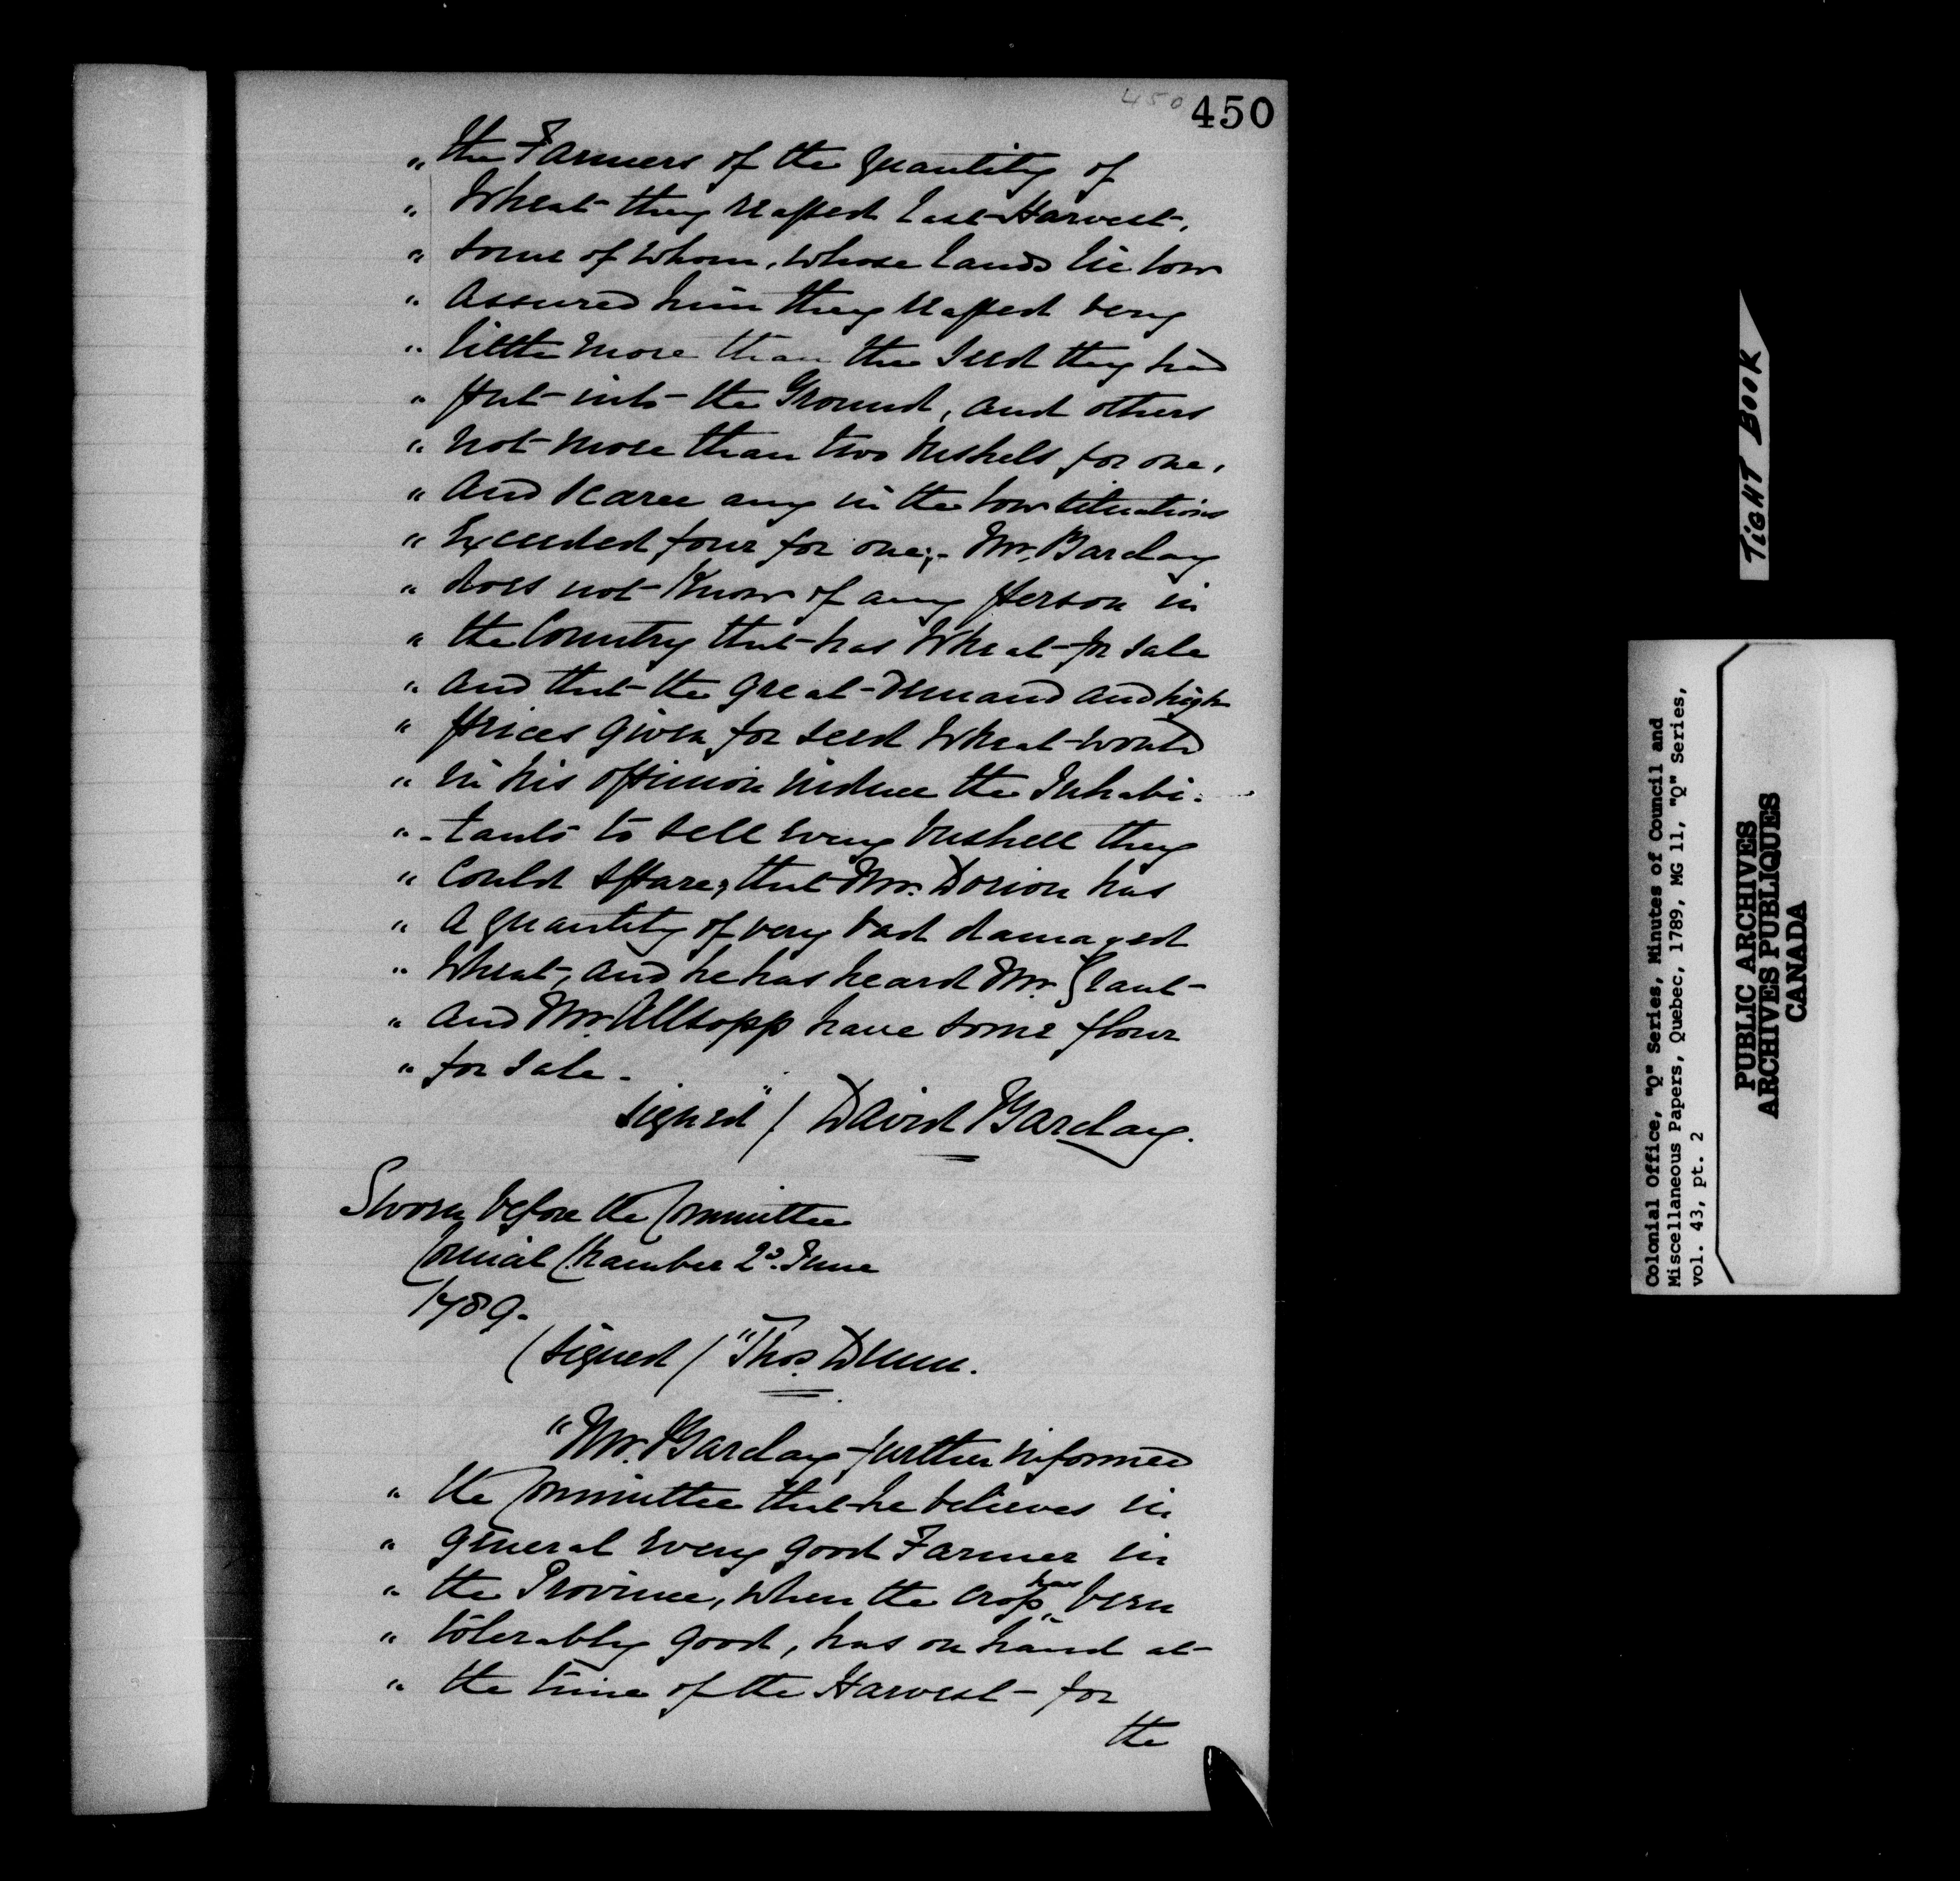 450
450
" the Farmers of the quantity of
" Wheat they reaped last Harvest,
" some of whom, whose lands lie low
" assured him they reaped very
" little more than the seed they had
" put into the Ground, and others
" not more than two bushels for one,
" and scarce any in the low situations
" Exceeded four for one;- Mr. Barclay
" does not know of any person in
" the Country that has Wheat for sale
" and that the great Demand and high
" prices given for seed Wheat would
" in his opinion induce the Inhabi-
" -tants to sell every bushell they
" could spare; that Mr. Dorion has
" a quantity of very bad damaged
" Wheat, and he has heard Mr. Grant
" and Mr. Allsopp have some flour
" for sale.
signed" / David Barclay.
Sworn before the Committee
Council Chamber 2d. June
1789.
(signed / "Thos. Dunn.
"Mr. Barclay further informed
" the Committee that he believes in
" general every good Farmer in
" the Province, when the crop has been
" tolerably good, has on hand at
" the time of the Harvest for
the
TIGHT BOOK
Colonial Office, "Q" Series, Minutes of Council and
Miscellaneous Papers, Quebec, 1789, MG 11, "Q" Series,
vol. 43, pt. 2
PUBLIC ARCHIVES
ARCHIVES PUBLIQUES
CANADA